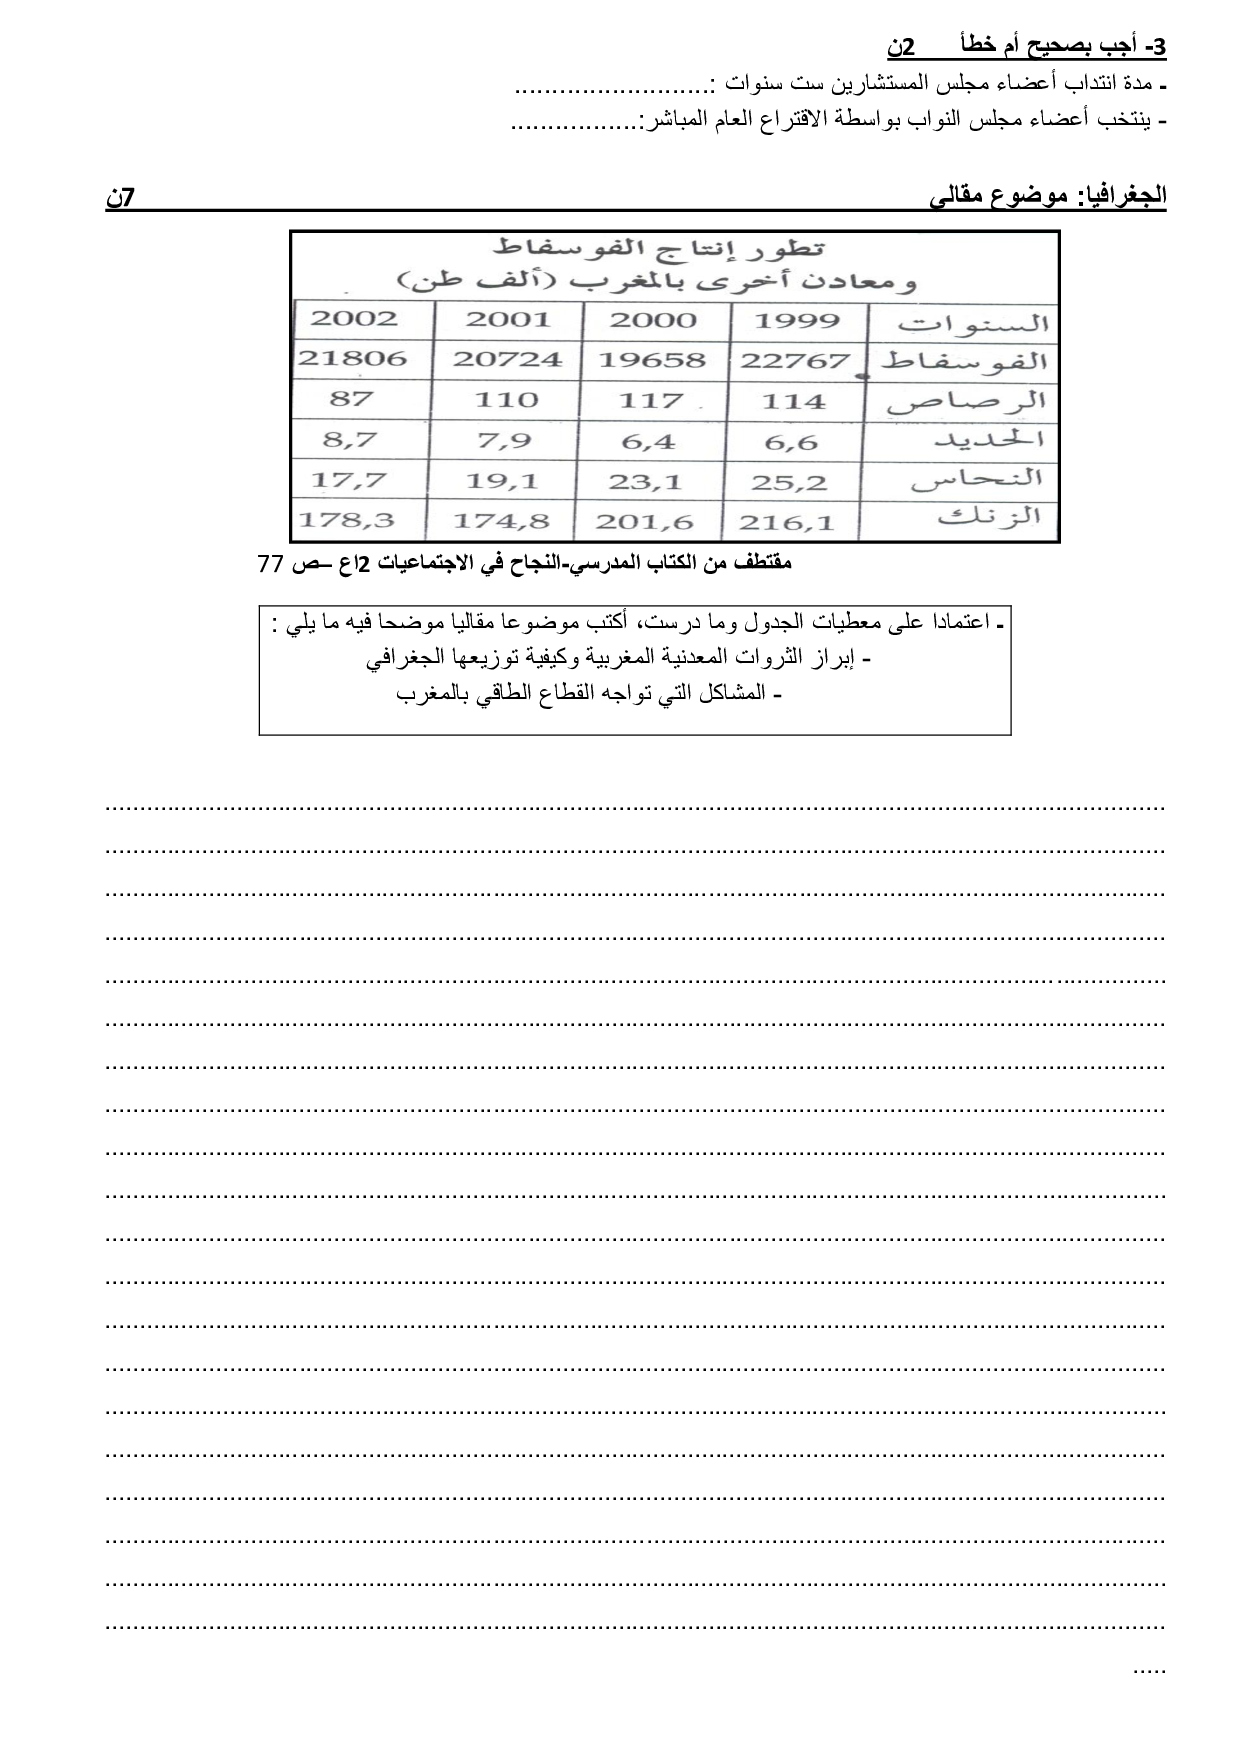 3- أجب بصحيح أم خطأ 2ن
- مدة انتداب أعضاء مجلس المستشارين ست سنوات :..........................
- ينتخب أعضاء مجلس النواب بواسطة الاقتراع العام المباشر:.................
الجغرافيا: موضوع مقالي 7ن
تطور إنتاج الفوسفاط
ومعادن أخرى بالمغرب (ألف طن)
السنوات 1999 2000 2001 2002
الفوسفاط 22767 19658 20724 21806
الرصاص 114 117 110 87
الحديد 6,6 6,4 7,9 8,7
النحاس 25,2 23,1 19,1 17,7
الزنك 216,1 201,6 174,8 178,3
مقتطف من الكتاب المدرسي-النجاح في الاجتماعيات 2اع –ص 77
- اعتمادا على معطيات الجدول وما درست، أكتب موضوعا مقاليا موضحا فيه ما يلي :
- إبراز الثروات المعدنية المغربية وكيفية توزيعها الجغرافي
- المشاكل التي تواجه القطاع الطاقي بالمغرب